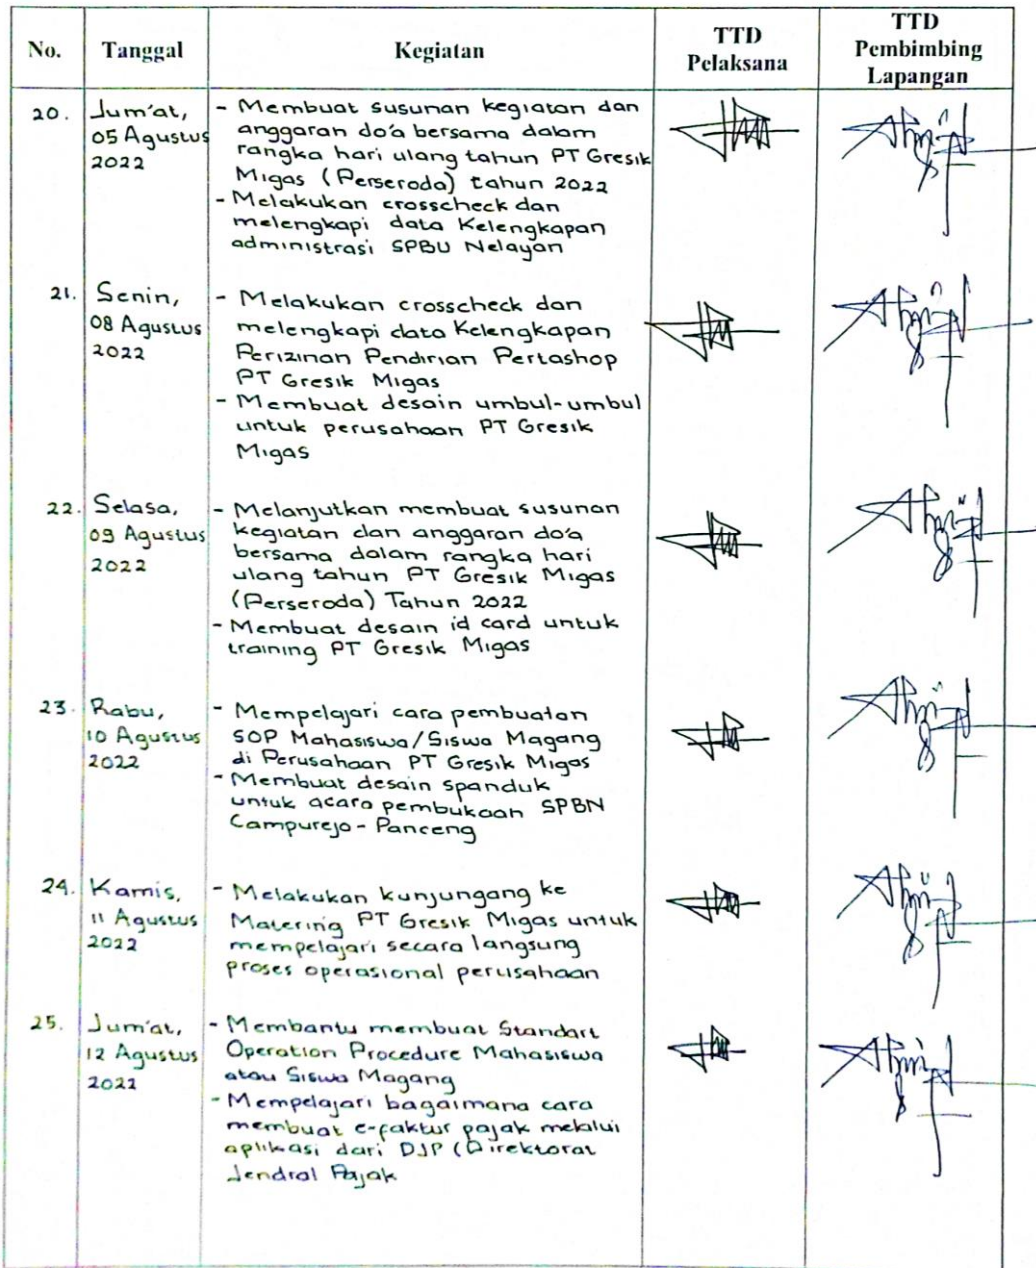 No. Tanggal Kegiatan TTD Pelaksana TTD Pembimbing Lapangan
20. Jum'at, - Membuat susunan kegiatan dan
05 Agustus anggaran do'a bersama dalam
2022 rangka hari ulang tahun PT Gresik
Migas (Perseroda) tahun 2022
- Melakukan crosscheck dan
melengkapi data Kelengkapan
administrasi SPBU Nelayan
21. Senin, - Melakukan crosscheck dan
08 Agustus melengkapi data Kelengkapan
2022 Perizinan Pendirian Pertashop
PT Gresik Migas
- Membuat desain umbul-umbul
untuk perusahaan PT Gresik
Migas
22. Selasa, - Melanjutkan membuat susunan
09 Agustus kegiatan dan anggaran do'a
2022 bersama dalam rangka hari
ulang tahun PT Gresik Migas
(Perseroda) Tahun 2022
- Membuat desain id card untuk
training PT Gresik Migas
23. Rabu, - Mempelajari cara pembuatan
10 Agustus SOP Mahasiswa/Siswa Magang
2022 di Perusahaan PT Gresik Migas
- Membuat desain spanduk
untuk acara pembukaan SPBN
Campurejo - Panceng
24. Kamis, - Melakukan kunjungang ke
11 Agustus Matering PT Gresik Migas untuk
2022 mempelajari secara langsung
proses operasional perusahaan
25. Jum'at, - Membantu membuat Standart
12 Agustus Operation Procedure Mahasiswa
2022 atau Siswa Magang
- Mempelajari bagaimana cara
membuat e-faktur pajak melalui
aplikasi dari DJP (Direktorat
Jendral Pajak